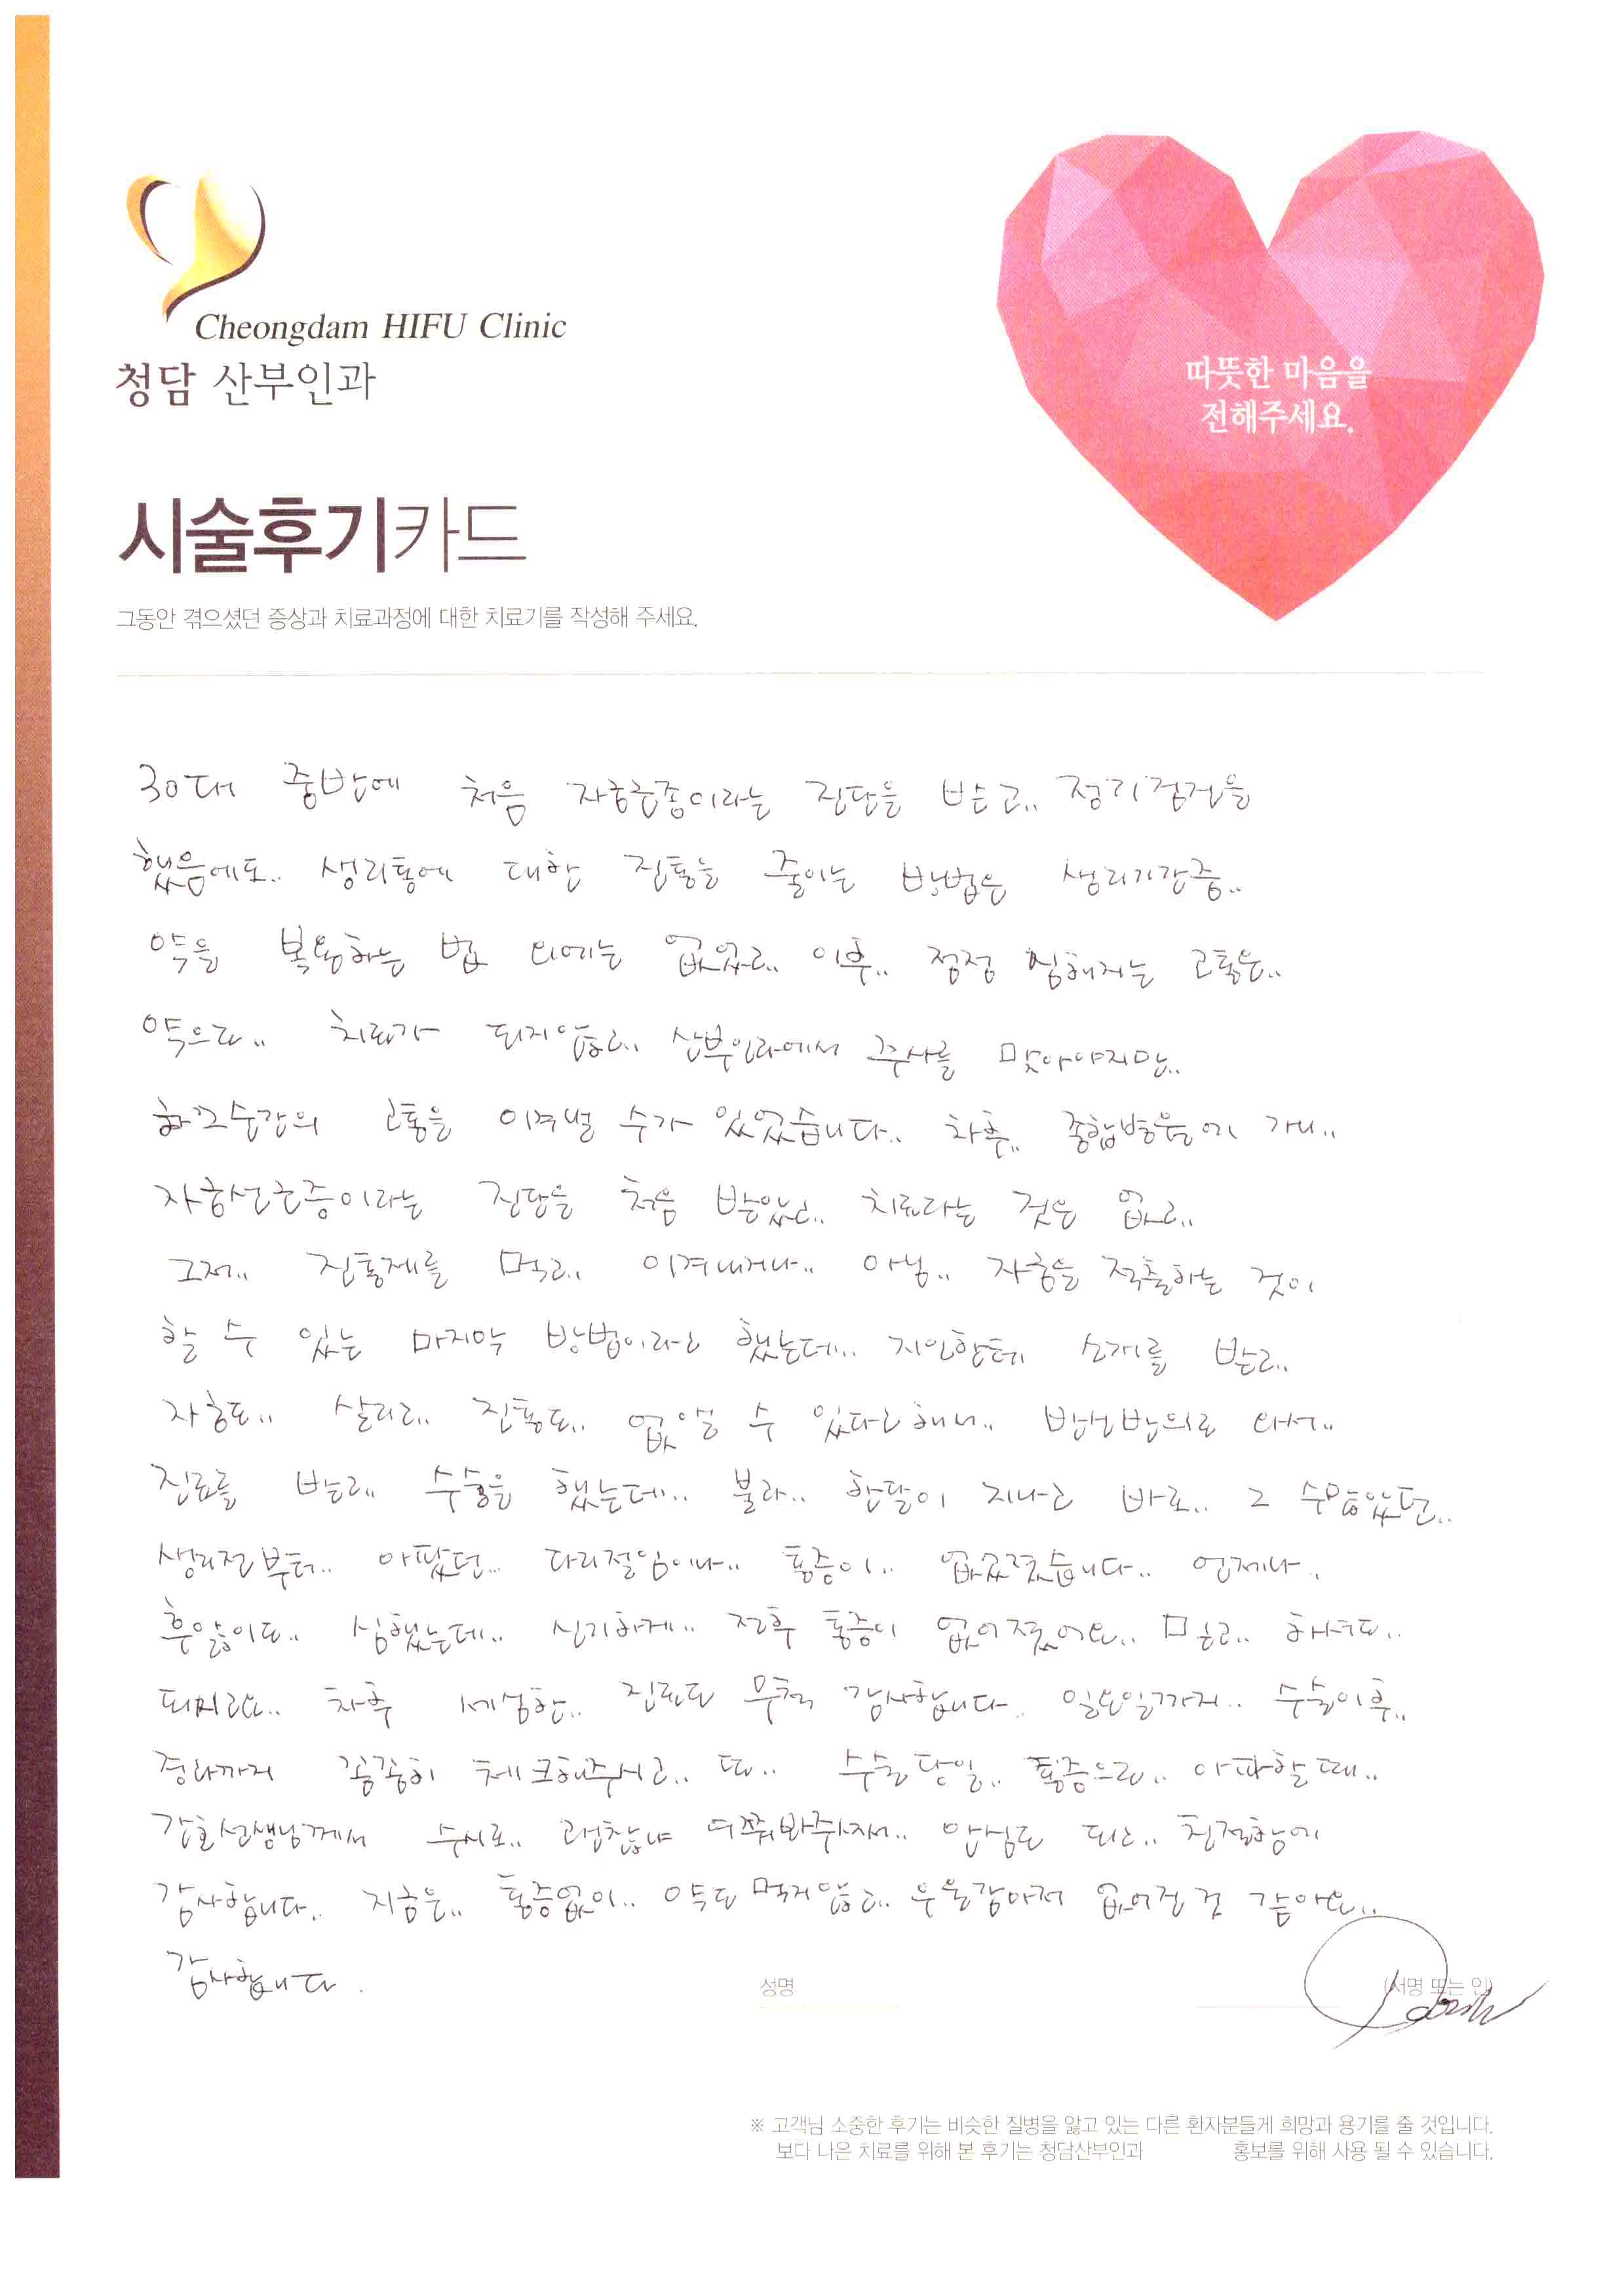 Cheongdam HIFU Clinic
청담 산부인과
따뜻한 마음을
전해주세요.
시술후기카드
그동안 겪으셨던 증상과 치료과정에 대한 치료기를 작성해 주세요.
30대 중반에 처음 자궁근종이라는 진단을 받고.. 정기검진을
했음에도.. 생리통에 대한 진통을 줄이는 방법은 생리기간중..
약을 복용하는 법 외에는 없었고.. 이후.. 점점 심해지는 고통은..
약으로.. 치료가 되지않고.. 산부인과에서 주사를 맞아야지만..
하루순간의 고통을 이겨낼 수가 있었습니다.. 차후.. 종합병원에 가니..
자궁선근증이라는 진단을 처음 받았고.. 치료라는 것은 없고..
그저.. 진통제를 먹고.. 이겨내거나.. 아님.. 자궁을 적출하는 것이
할 수 있는 마지막 방법이라고 했는데... 지인한테 소개를 받고..
자궁도.. 살리고.. 진통도.. 없앨 수 있다고해서.. 반신반의로 와서..
진료를 받고.. 수술을 했는데.. 불과.. 한달이 지나고 바로.. 그
생리전부터.. 아팠던... 다리절임이나.. 통증이.. 언제나..
후앓이도.. 심했는데.. 신기하게.. 전후 통증이 없어졌어요.. 믿고.. 하셔도..
되시고요.. 차후 세심한.. 진료도 무척 감사합니다. 일요일까지.. 수술이후..
경과까지 꼼꼼히 체크해주시고.. 또.. 수술당일.. 통증으로.. 아파할때..
간호선생님께서 수시로.. 괜찮냐 여쭤봐주셔서.. 안심도 되고.. 친절함에
감사합니다.. 지금은.. 통증없이.. 약도 먹지않고.. 우울감마저 없어진 것 같아요..
감사합니다.
성명 (서명 또는 인)
※ 고객님 소중한 후기는 비슷한 질병을 앓고 있는 다른 환자분들게 희망과 용기를 줄 것입니다.
보다 나은 치료를 위해 본 후기는 청담산부인과 홍보를 위해 사용 될 수 있습니다.